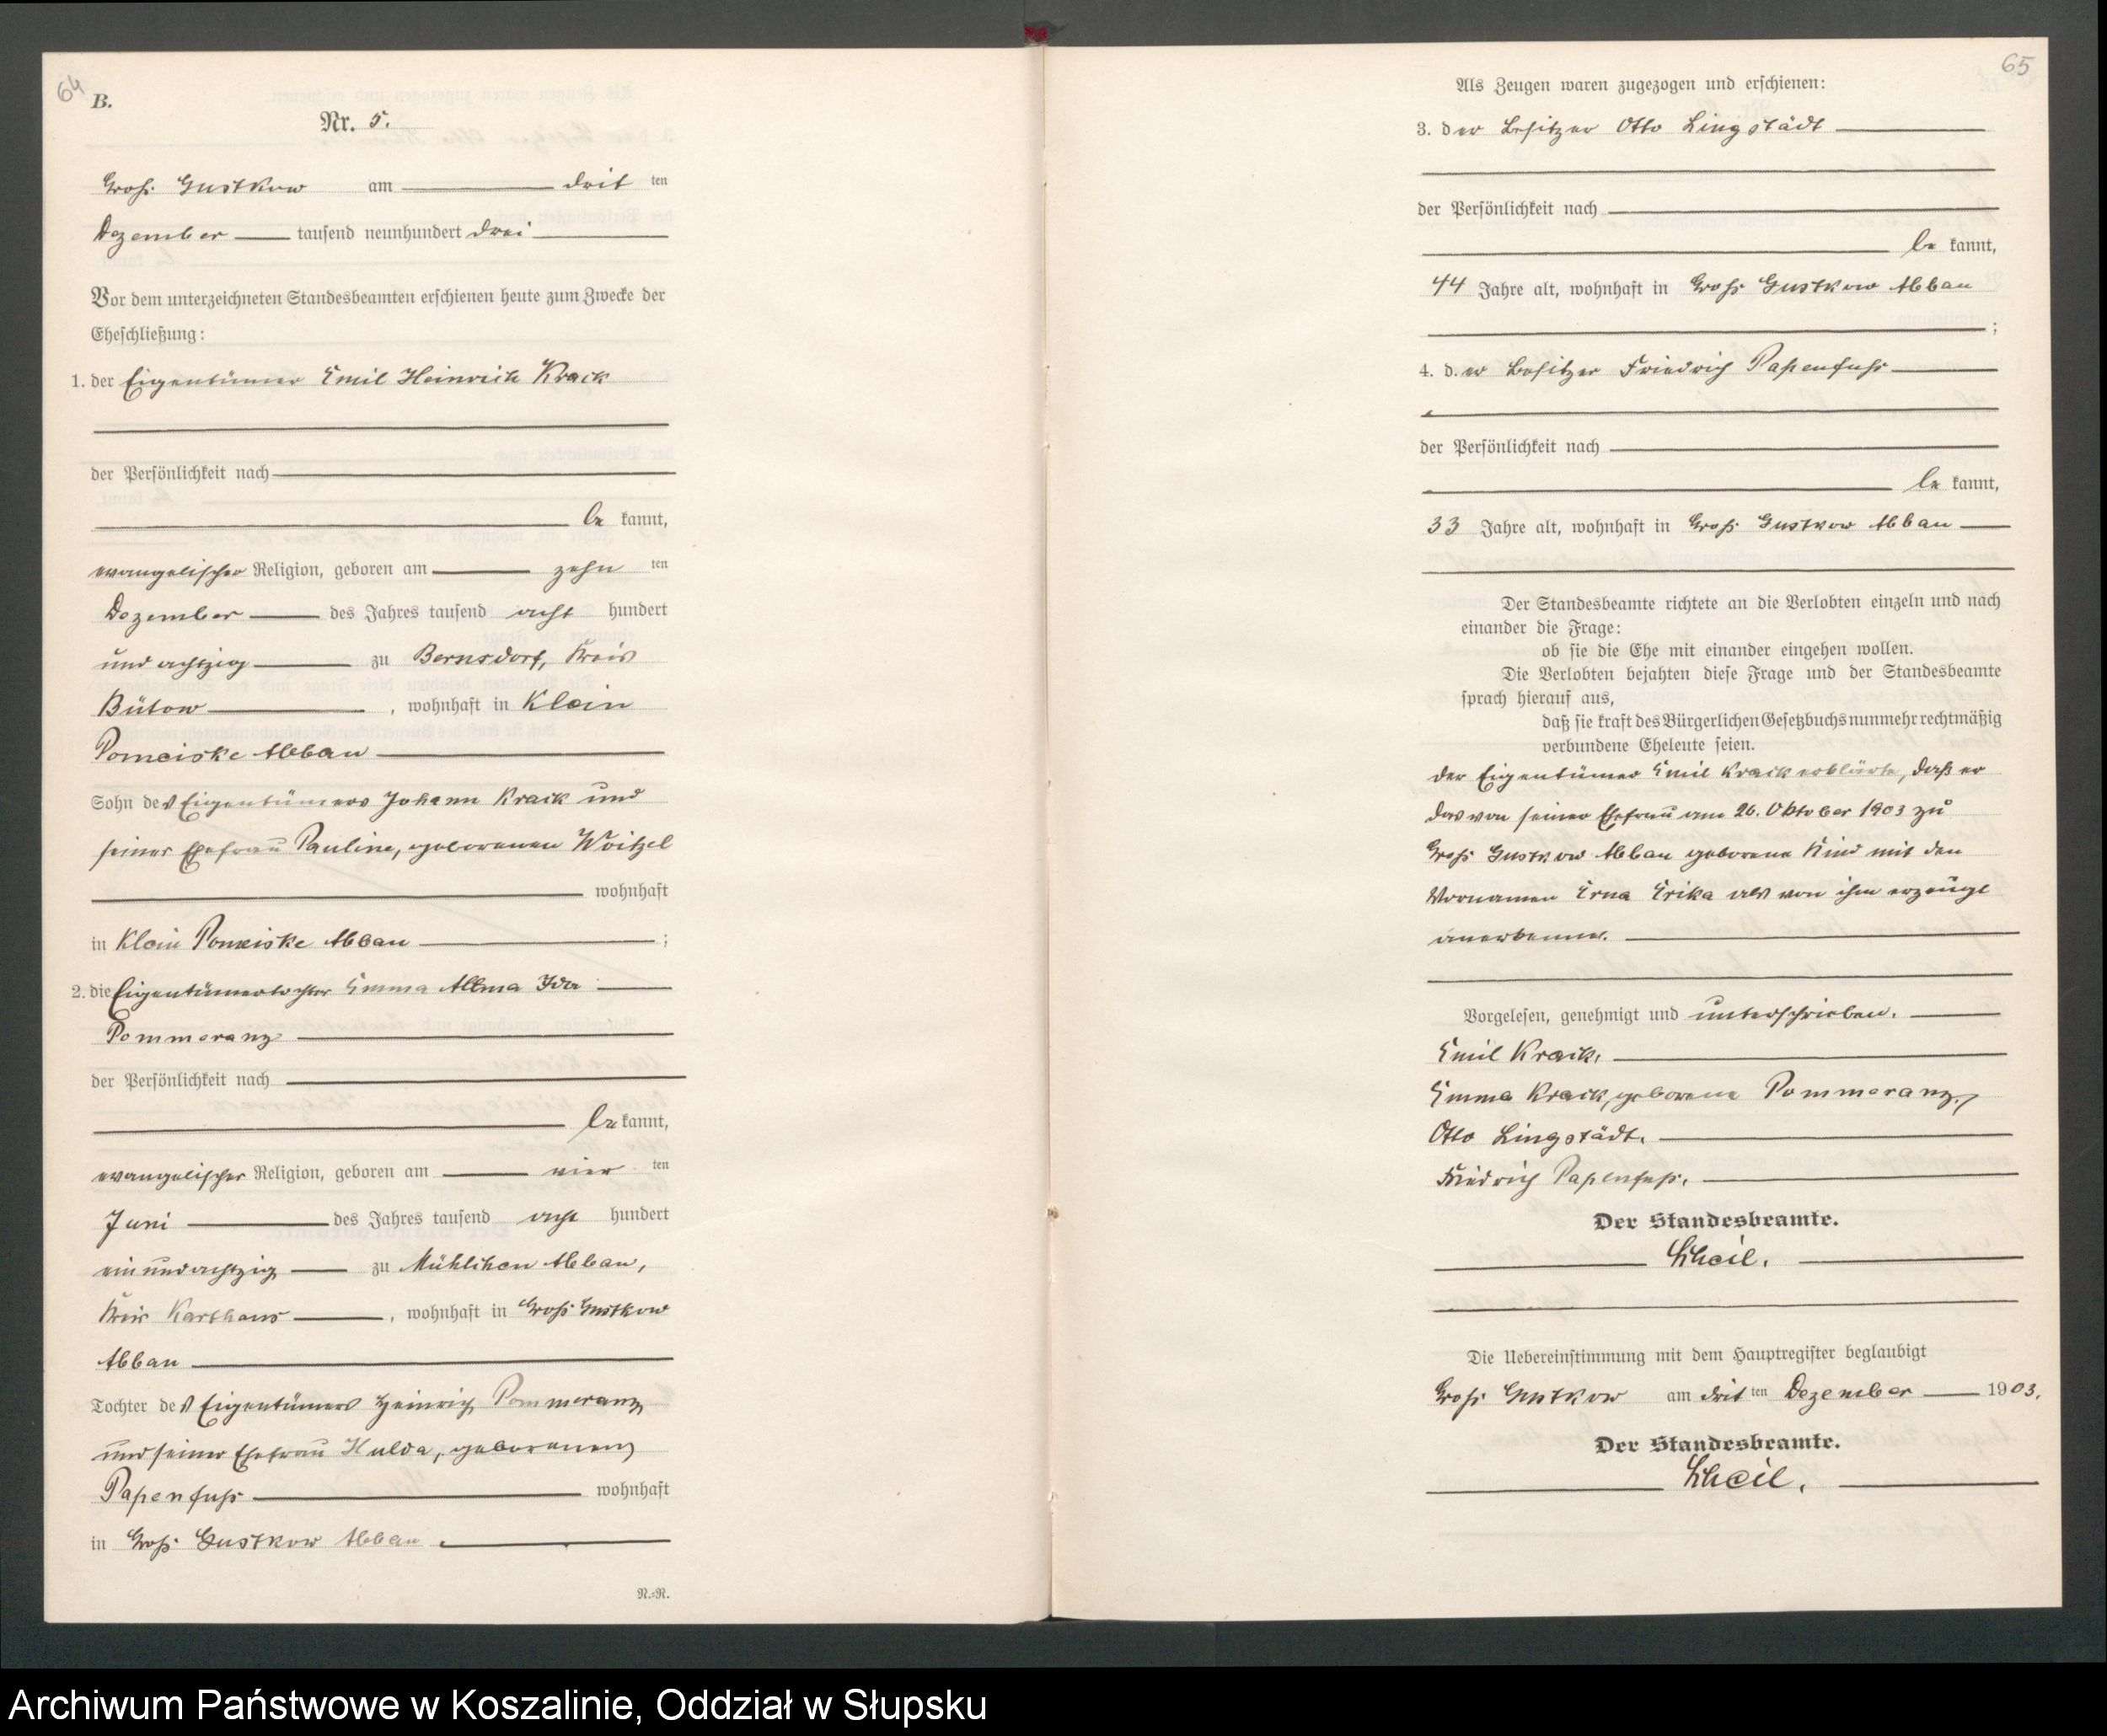 64
B.
Nr. 5.
Groß Gustkow am dritten
Dezember tausend neunhundert drei
Vor dem unterzeichneten Standesbeamten erschienen heute zum Zwecke der
Eheschließung:
1. der Eigentümer Emil Heinrich Krack
der Persönlichkeit nach
bekannt,
evangelischer Religion, geboren am zehnten
Dezember des Jahres tausend achthundert
und achtzig zu Bernsdorf, Kreis
Bütow, wohnhaft in Klein
Pomeiske Abbau
Sohn des Eigentümers Johann Krack und
seiner Ehefrau Pauline, geborenen Woitzel
wohnhaft
in Klein Pomeiske Abbau;
2. die Eigentümertochter Emma Allma Ida
Pommeranz
der Persönlichkeit nach
bekannt,
evangelischer Religion, geboren am vierten
Juni des Jahres tausend achthundert
einundachtzig zu Mühlchen Abbau,
Kreis Karthaus, wohnhaft in Groß Gustkow
Abbau
Tochter des Eigentümers Heinrich Pommeranz
und seiner Ehefrau Hulda, geborenen
Papenfuß wohnhaft
in Groß Gustkow Abbau.
N.=R.
65
Als Zeugen waren zugezogen und erschienen:
3. der Besitzer Otto Lingstädt
der Persönlichkeit nach
bekannt,
44 Jahre alt, wohnhaft in Groß Gustkow Abbau
;
4. der Besitzer Friedrich Papenfuß
der Persönlichkeit nach
bekannt,
33 Jahre alt, wohnhaft in Groß Gustkow Abbau
Der Standesbeamte richtete an die Verlobten einzeln und nach
einander die Frage:
ob sie die Ehe mit einander eingehen wollen.
Die Verlobten bejahten diese Frage und der Standesbeamte
sprach hierauf aus,
daß sie kraft des Bürgerlichen Gesetzbuchs nunmehr rechtmäßig
verbundene Eheleute seien.
Der Eigentümer Emil Krack erklärte, daß er
das von seiner Ehefrau am 26. Oktober 1903 zu
Groß Gustkow Abbau geborene Kind mit den
Vornamen Erna Erika als von ihm erzeugt
anerkenne.
Vorgelesen, genehmigt und unterschrieben.
Emil Krack.
Emma Krack, geborene Pommeranz,
Otto Lingstädt.
Friedrich Papenfuß.
Der Standesbeamte.
Die Uebereinstimmung mit dem Hauptregister beglaubigt
Groß Gustkow am dritten Dezember 1903.
Der Standesbeamte.
Archiwum Państwowe w Koszalinie, Oddział w Słupsku